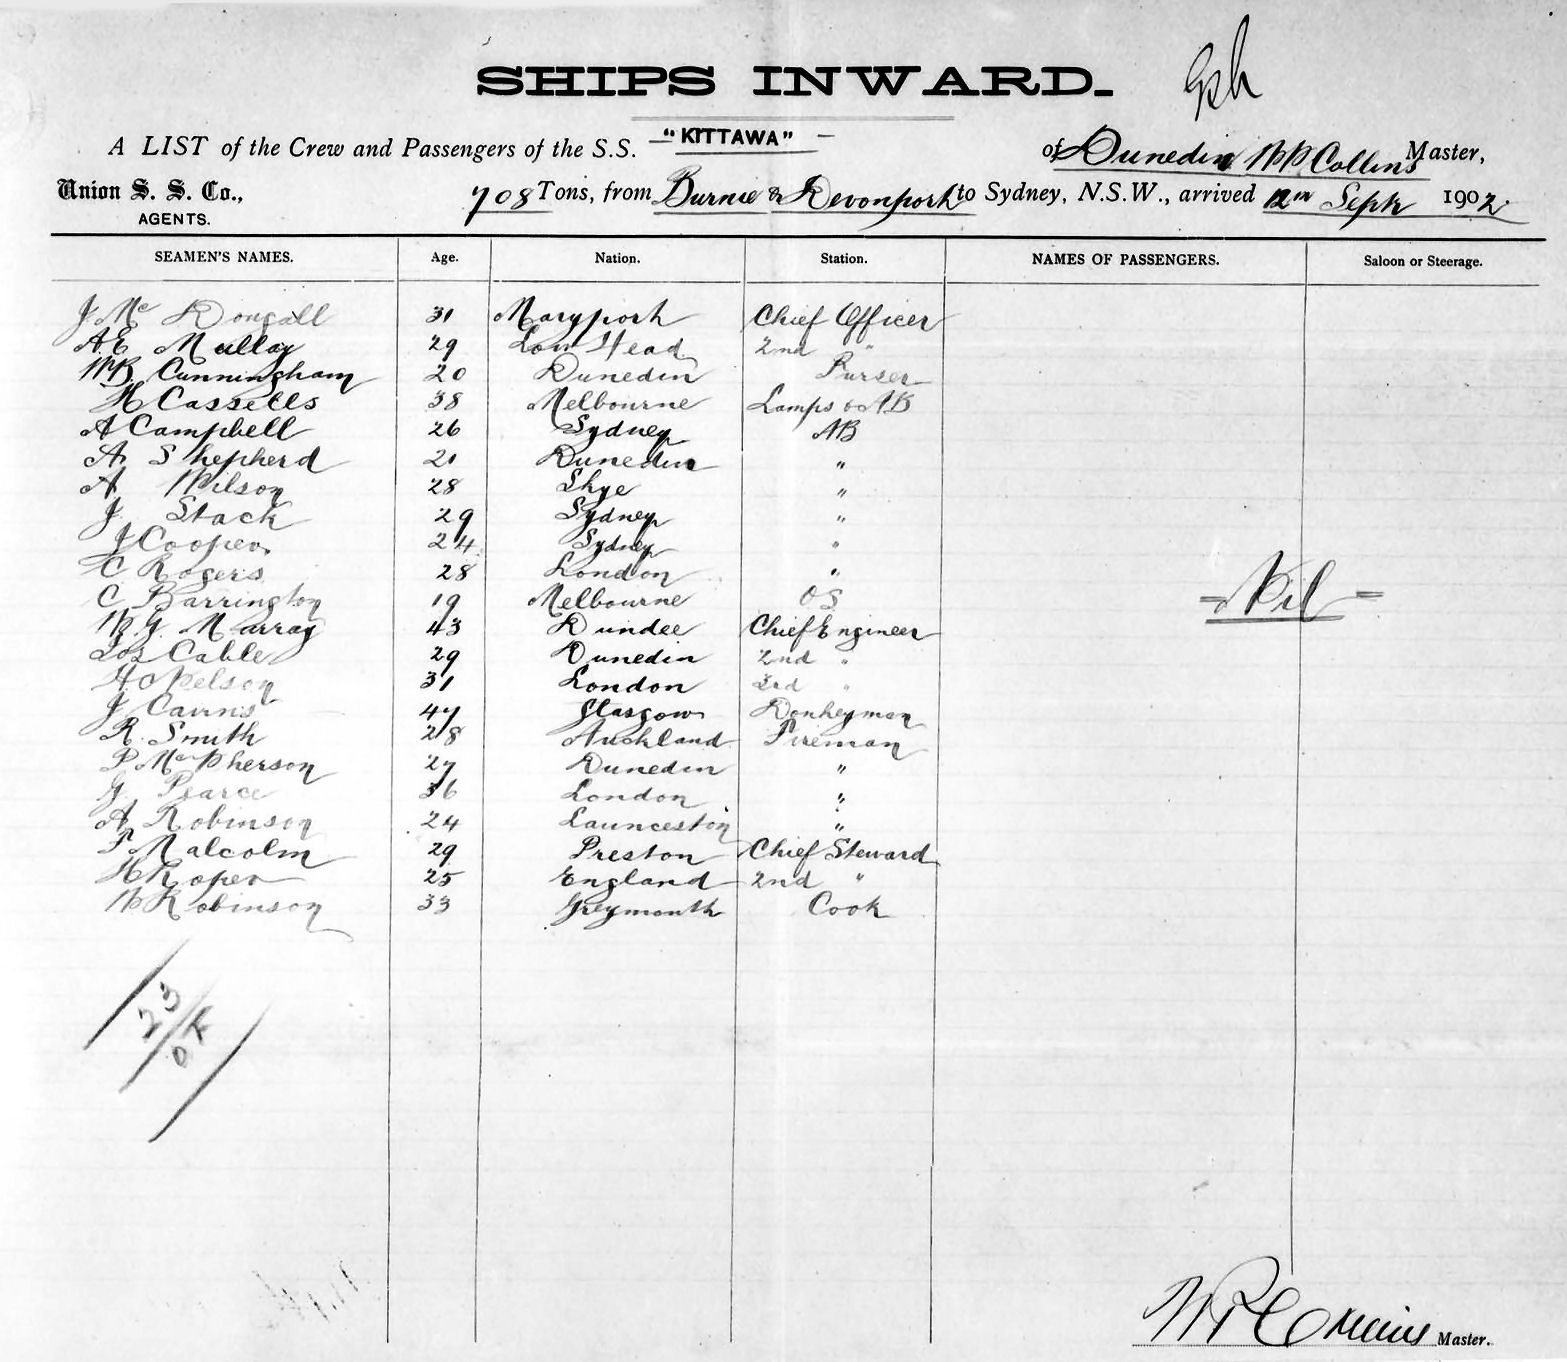 SHIPS INWARD.
A LIST of the Crew and Passengers of the S.S. "KITTAWA" of Dunedin W P Collins Master,
Union S. S. Co., AGENTS. 708 Tons, from Burnie & Devonport to Sydney, N.S.W., arrived 12th Septr 1902.
SEAMEN'S NAMES. Age. Nation. Station. NAMES OF PASSENGERS. Saloon or Steerage.
J Mc Dougall 31 Maryport Chief Officer
A E Mullay 29 Low Head 2nd "
W B Cunningham 20 Dunedin Purser
H Cassells 38 Melbourne Lamps & AB
A Campbell 26 Sydney AB
A Shepherd 21 Dunedin "
A Wilson 28 Skye "
J Stack 29 Sydney "
J Cooper 24 Sydney "
C Rogers 28 London "
C Barrington 19 Melbourne OS
W. G. Murray 43 Dundee Chief Engineer
Jos Cable 29 Dunedin 2nd "
H. O Nelson 31 London 3rd "
J Cairns 47 Glasgow Donkeyman
R. Smith 28 Auckland Fireman
P. McPherson 27 Dunedin "
G Pearce 36 London "
A Robinson 24 Launceston "
P Malcolm 29 Preston Chief Steward
H Roper 25 England 2nd "
W Robinson 33 Greymouth Cook
= Nil =
23
OK
W P Collins Master.